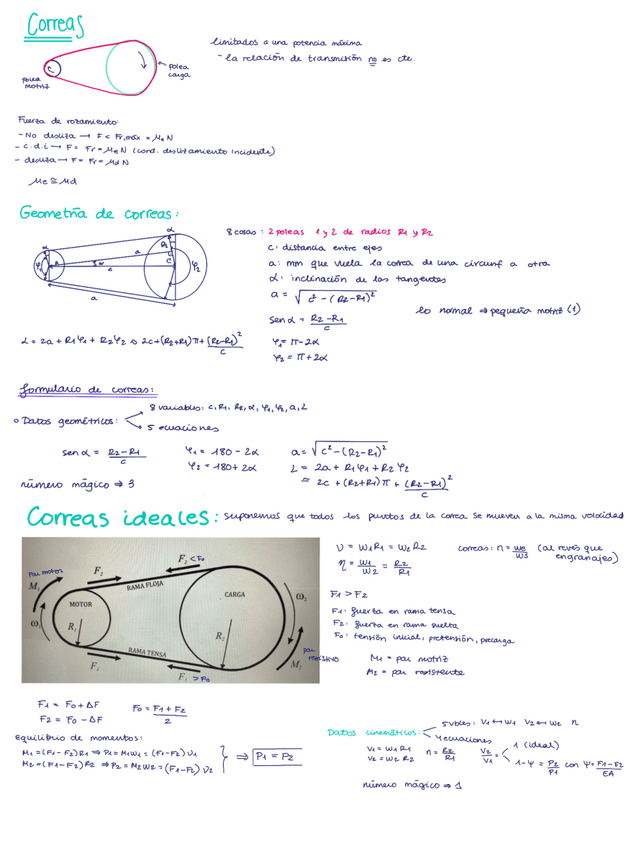 Correas
limitados a una potencia máxima
- la relación de transmisión no es cte.
polea motriz
polea carga
Fuerza de rozamiento:
- No desliza → F < Fr,máx = μe N
- c.d.i → F = Fr = μe N (cond. deslizamiento incidente)
- desliza → F = Fr = μd N
μe ≅ μd
Geometría de correas:
8 cosas: 2 poleas 1 y 2 de radios R1 y R2
c: distancia entre ejes
a: mm que vuela la correa de una circunf a otra
α: inclinación de las tangentes
a = √c² - (R2-R1)²
lo normal ⇒ pequeña motriz (1)
sen α = R2-R1 / c
L = 2a + R1φ1 + R2φ2 ≈ 2c + (R2+R1)π + (R2-R1)² / c
φ1 = π - 2α
φ2 = π + 2α
formulario de correas:
o Datos geométricos:
8 variables: c, R1, R2, α, φ1, φ2, a, L
5 ecuaciones
sen α = R2-R1 / c
φ1 = 180 - 2α
φ2 = 180 + 2α
a = √c² - (R2-R1)²
L = 2a + R1φ1 + R2φ2
≈ 2c + (R2+R1)π + (R2-R1)² / c
número mágico ⇒ 3
Correas ideales: suponemos que todos los puntos de la correa se mueven a la misma velocidad
V = W1R1 = W2R2
η = W1 / W2 = R2 / R1
(al revés que engranajes)
Par motor
M1
F2
F2 < F0
RAMA FLOJA
MOTOR
CARGA
ω1
ω2
R1
R2
RAMA TENSA
F1
F1 > F0
par resistivo
M2
F1 > F2
F1: fuerza en rama tensa
F2: fuerza en rama suelta
F0: tensión inicial, pretensión, precarga
M1 = par motriz
M2 = par resistente
F1 = F0 + ΔF
F2 = F0 - ΔF
F0 = F1 + F2 / 2
Equilibrio de momentos:
M1 = (F1-F2)R1 ⇒ P1 = M1W1 = (F1-F2)V1
M2 = (F1-F2)R2 ⇒ P2 = M2W2 = (F1-F2)V2
⇒ P1 = P2
Datos cinemáticos:
5 vbles: V1 ↔ W1 V2 ↔ W2 n
4 ecuaciones
V1 = W1R1
V2 = W2R2
n = R2 / R1
V2 / V1 =
1 (ideal)
1-Ψ = P2 / P1 con Ψ = F1-F2 / EA
número mágico ⇒ 1